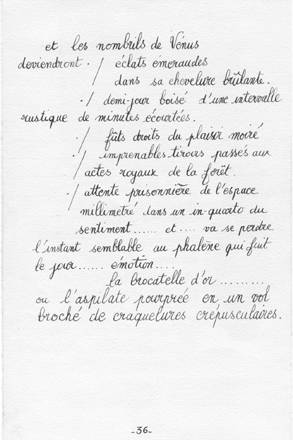 et les nombrils de Vénus
deviendront ./ éclats emeraudes
dans sa chevelure brûlante.
./ demi-jour boisé d'une intervalle
rustique de minutes écourtées.
./ fûts droits du plaisir moiré
./ imprenables tiroirs passés aux
actes royaux de la forêt.
./ attente prisonnière de l'espace
millimétré dans un in-quarto du
sentiment...... et.... va se perdre
l'instant semblable au phalène qui fuit
le jour...... émotion....
la brocatelle d'or.........
ou l'aspilate pourprée en un vol
broché de craquelures crépusculaires.
-36-